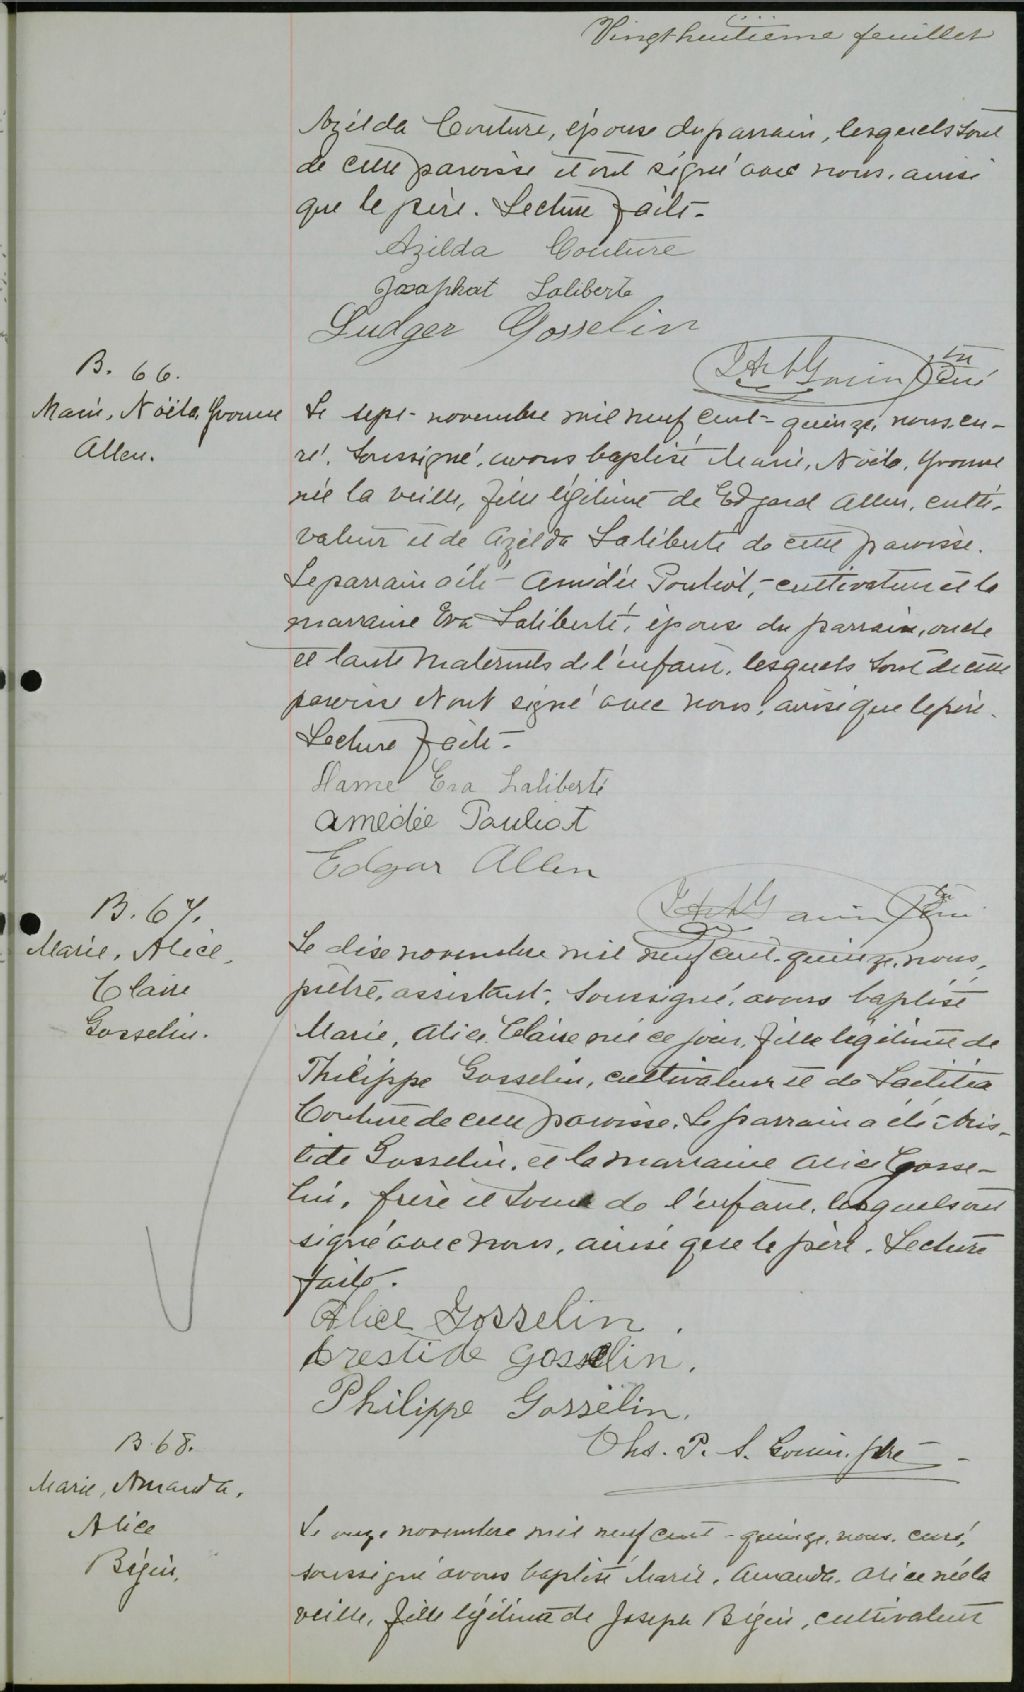 Vingt huitième feuillet
Azilda Couture, épouse du parrain, lesquels sont
de cette paroisse et ont signé avec nous, ainsi
que le père. Lecture faite.
Azilda Couture
Josaphat Laliberté
Ludger Gosselin
ptre
curé
B. 66.
Marie, Noëla, Yvonne
Allen.
Le sept novembre mil neuf cent quinze, nous, cu-
ré, soussigné, avons baptisé Marie, Noëla, Yvonne
née la veille, fille légitime de Edgard Allen, culti-
vateur et de Azilda Laliberté de cette paroisse.
Le parrain a été Amédée Pouliot, cultivateur et la
marraine Eva Laliberté, épouse du parrain, oncle
et tante maternels de l'enfant, lesquels sont de cette
paroisse et ont signé avec nous, ainsi que le père.
Lecture faite.
Dame Eva Laliberté
Amédée Pouliot
Edgar Allen
ptre
curé
B. 67.
Marie, Alice,
Claire
Gosselin.
Le dixe novembre mil neuf cent quinze, nous,
prêtre, assistant, soussigné, avons baptisé
Marie, Alice, Claire née ce jour, fille légitime de
Philippe Gosselin, cultivateur et de Laetitia
Couture de cette paroisse. Le parrain a été Aris-
tide Gosselin, et la marraine Alice Gosse-
lin, frère et soeur de l'enfant, lesquels ont
signé avec nous, ainsi que le père. Lecture
faite.
Alice Gosselin.
Arestide Gosselin.
Philippe Gosselin.
Chs. P. S. Gouin, ptre
B. 68.
Marie, Amanda,
Alice
Bégin.
Le onze novembre mil neuf cent quinze, nous, curé,
soussigné avons baptisé Marie, Amanda, Alice née la
veille, fille légitime de Joseph Bégin, cultivateur